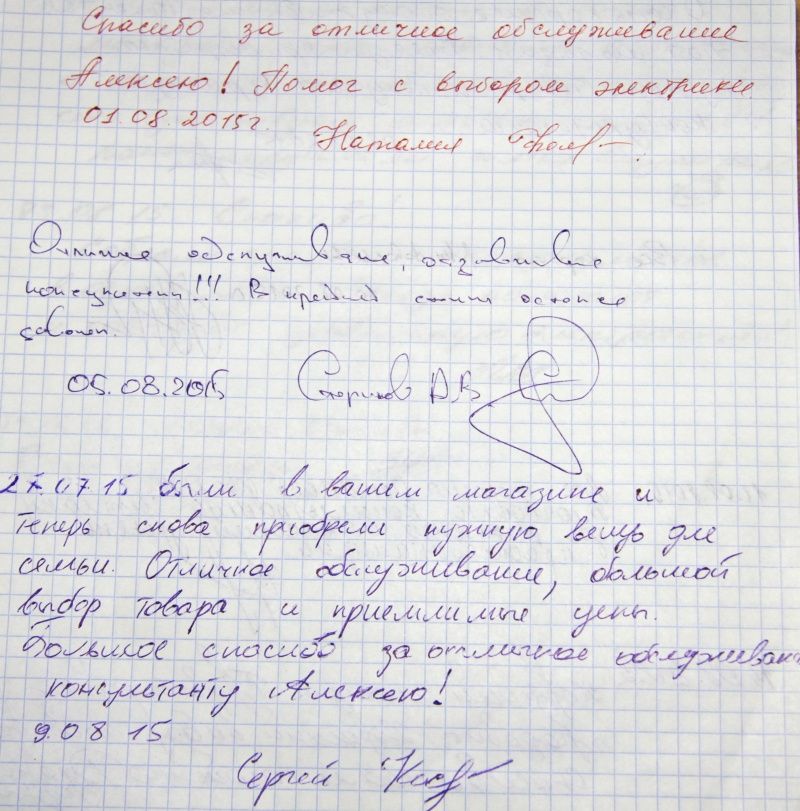 Спасибо за отличное обслуживание
Алексею! Помог с выбором электрики
01.08.2015г.
Наталия
Отличное обслуживание,
консультации!!! В
салоном.
05.08.2015
27.07.15 были в вашем магазине и
теперь снова приобрели нужную вещь для
семьи. Отличное обслуживание, большой
выбор товара и приемлимые цены.
Большое спасибо за отличное обслуживани
консультанту Алексею!
9.08 15
Сергей